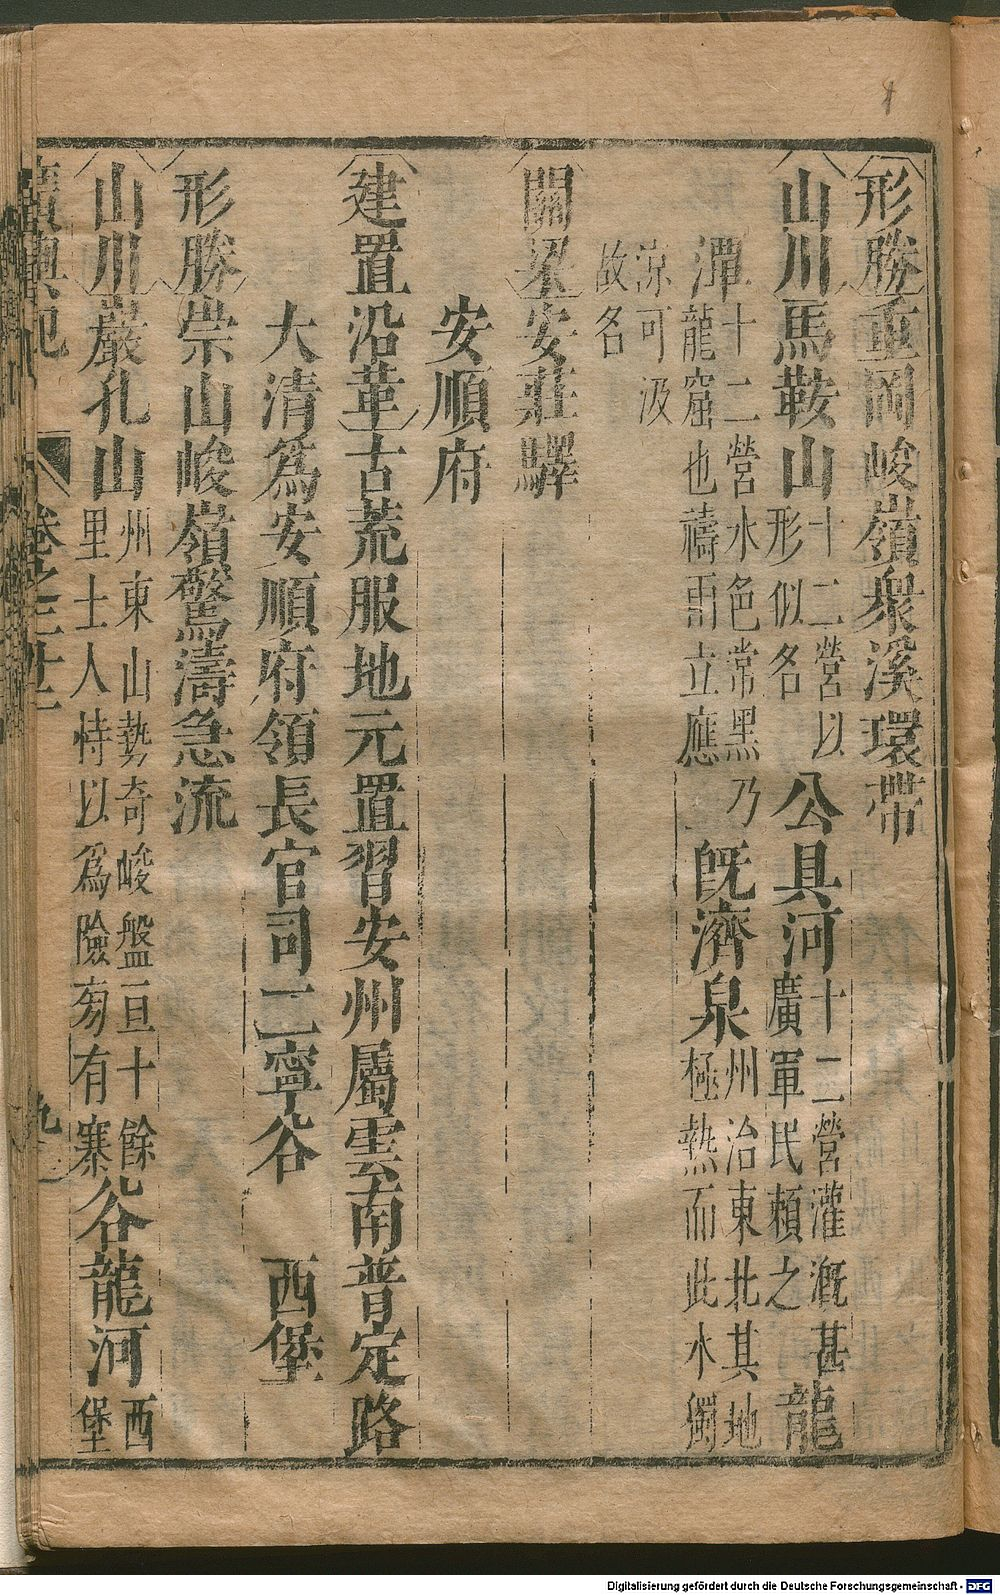 形勝重岡峻嶺衆溪環帶
山川馬鞍山十二營以形似名公具河十二營灌漑甚廣軍民頼之龍
潭十二營水色常黑乃龍窟也禱雨立應旣濟泉州治東北其地極熱而此水獨
凉可汲故名
關梁安莊驛
安順府
建置沿革古荒服地元置習安州屬雲南普定路
大清爲安順府領長官司二寧谷 西堡
形勝崇山峻嶺驚濤急流
山川巖孔山州東山勢奇峻盤亘十餘里土人恃以爲險旁有寨谷龍河西堡
廣輿記 卷之二十二 九
Digitalisierung gefördert durch die Deutsche Forschungsgemeinschaft - DFG